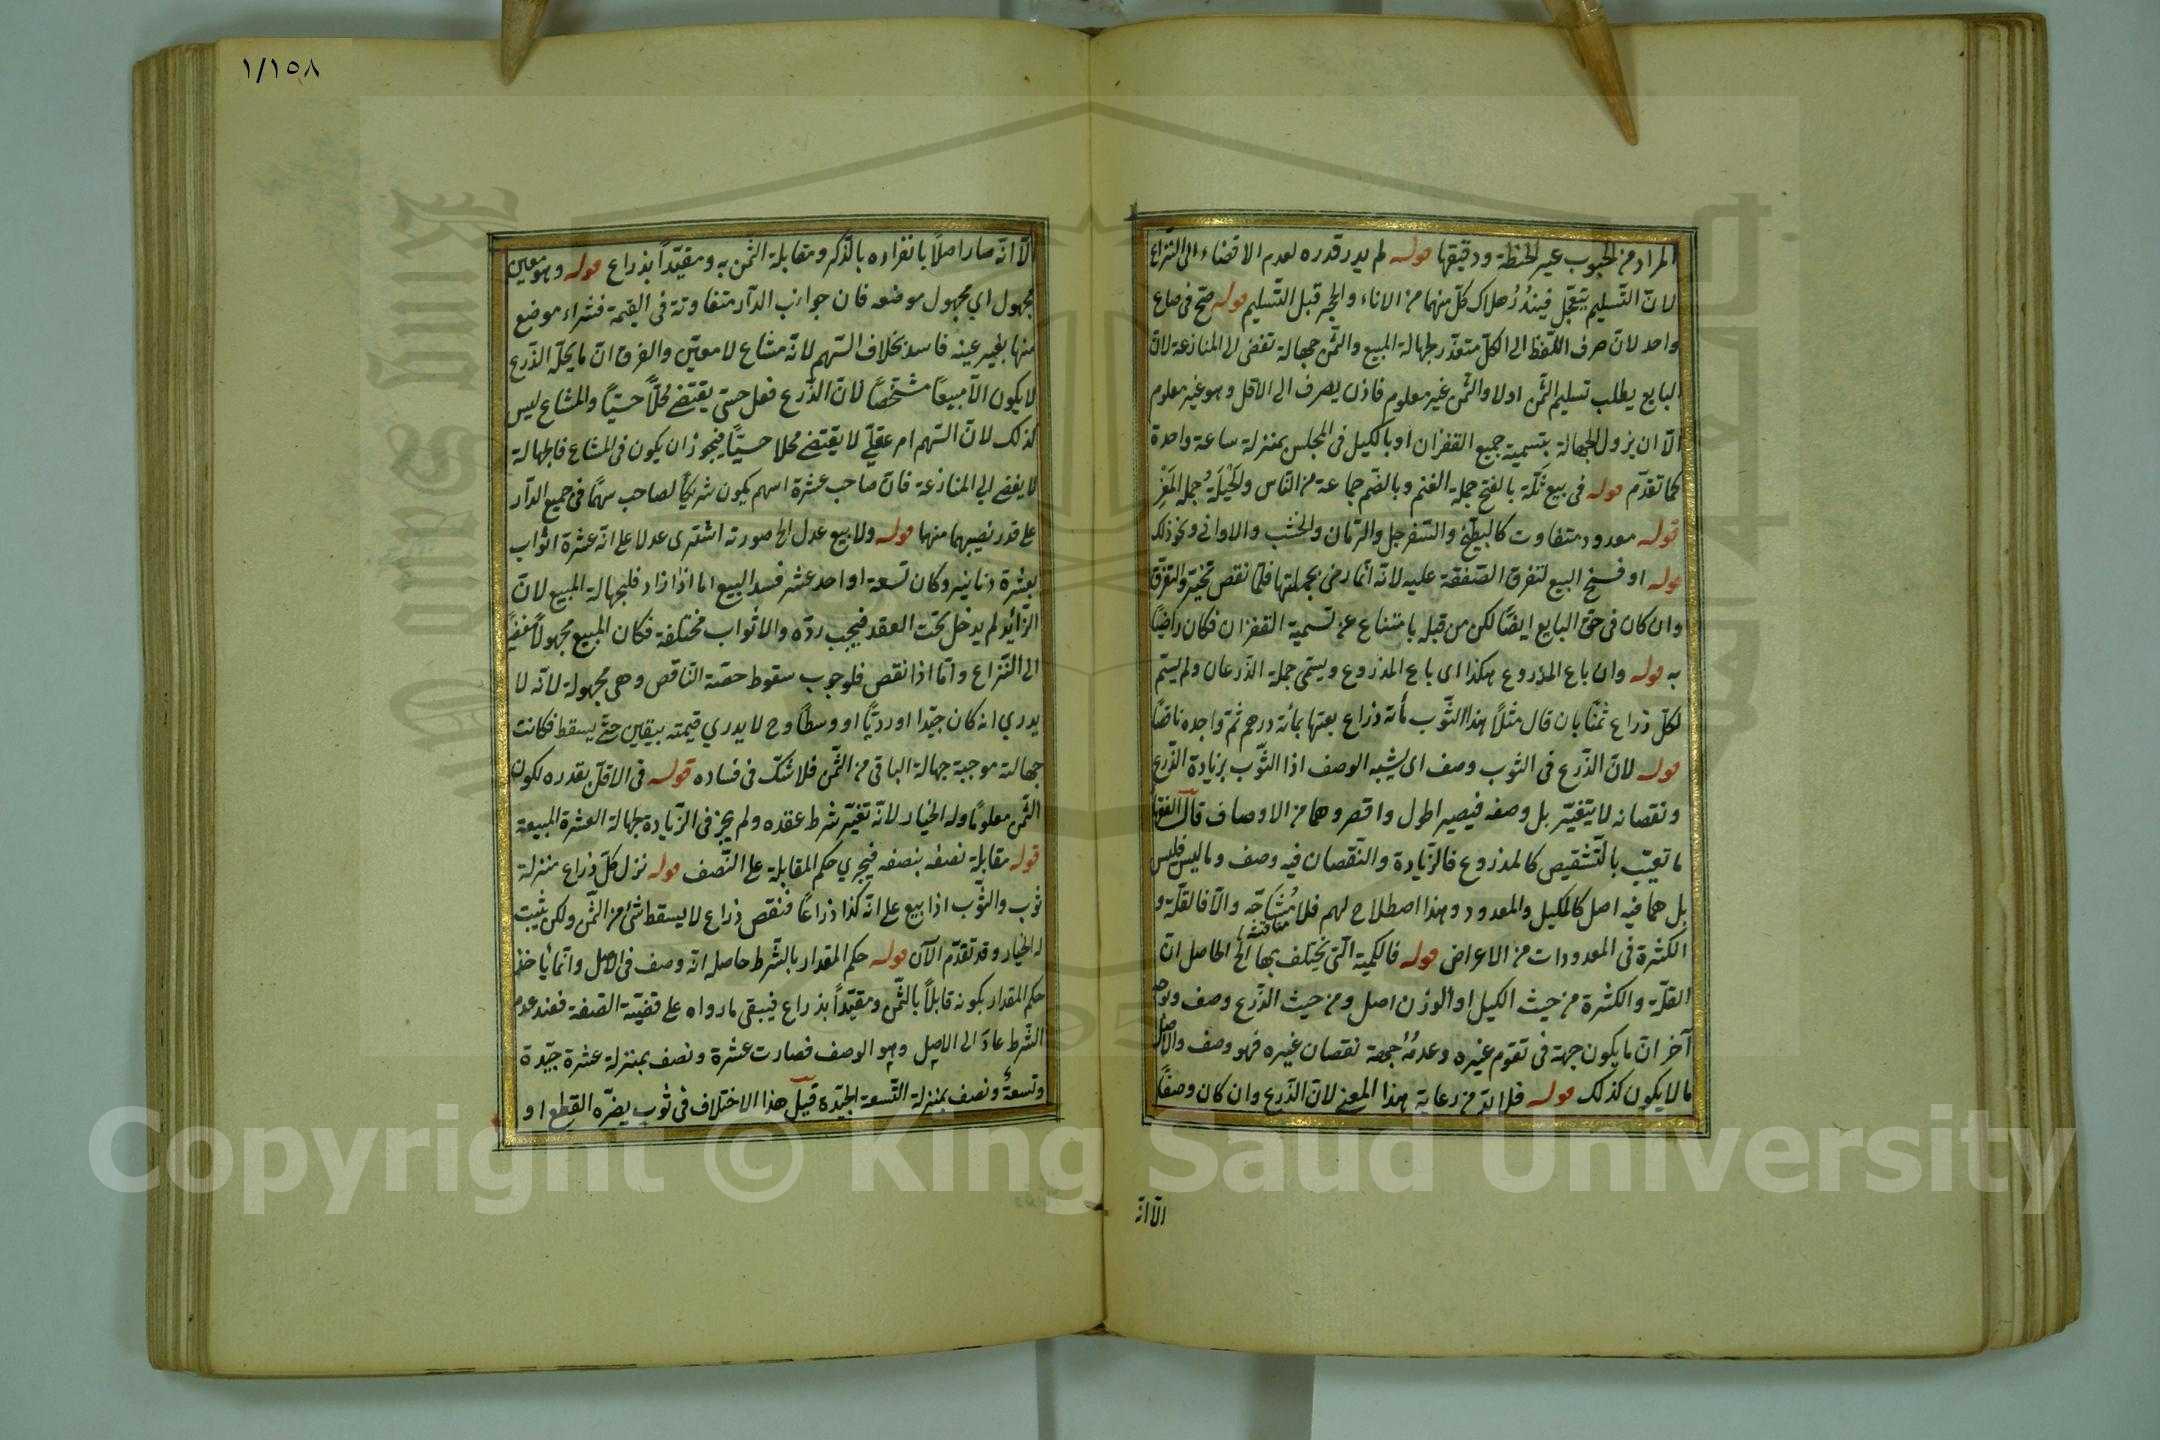 المراد من الحبوب عين الحنطة ودقيقها قوله لم يدر قدره لعدم الافضاء الى النزاع
لانّ التسليم يتعجّل فيندُرُ هلاك كلّ منهما من الاناء والحجر قبل التسليم قوله صحّ فى صاع
واحد لانّ صرف اللّفظ الى الكلّ متعذّر لجهالة المبيع والثّمن جهالة تفضى الى المنازعة لانّ
البايع يطلب تسليم الثّمن اولا والثّمن غير معلوم فاذن يصرف الى الاقلّ وهو غير معلوم
الّا ان يزول الجهالة بتسمية جميع القفزان او بالكيل فى المجلس بمنزلة ساعة واحدة
كما تقدّم قوله فى بيع ثَلّة بالفتح جملة الغنم وبالضّم جماعة من النّاس والحَيْلَةُ جملة المَعْز
قوله معدود متفاوت كالبطّيخ والسّفرجل والرّمان والخشب والاوانى ونحو ذلك
قوله او فسخ البيع لتفرق الصّفقة عليه لانّه انّما رضى بجملتها فلمّا نقص تخيّر والتفرّق
وان كان فى حقّ البايع ايضًا لكن من قبله بامتناع عن تسمية القفزان فكان راضيًا
به قوله وان باع المذروع هكذا اى باع المذروع ويسمّى جملة الذّرعان ولم يسمّ
لكلّ ذراع ثمنًا بان قال مثلًا هذا الثّوب مأئة ذراع بعتها بمائة درهم ثمّ واجده ناقصًا
قوله لانّ الذّرع فى الثوب وصف اى يشبه الوصف اذا الثّوب بزيادة الذّرع
ونقصانه لا يتغيّر بل وصفه فيصير اطول واقصر وهما من الاوصاف قال الفقها
ما تعيّب بالتّشقيص كالمذروع فالزّيادة والنّقصان فيه وصف وما ليس فليس
بل هما فيه اصل كالمكيل والمعدود وهذا اصطلاح لهم فلا مُشاحّة والّا فالقلّة و
مناقشة
الكثرة فى المعدودات من الاعراض قوله فالكمية الّتى يختلف بها الخ الحاصل انّ
القلّة والكثرة من حيث الكيل او الوزن اصل ومن حيث الذّرع وصف وتوجيه
آخر انّ ما يكون جهة فى تقوم غيره وعدمُهُ جهة نقصان غيره فهو وصف والاصل
ما لا يكون كذلك قوله فلا بدّ من رعاية هذا المعنى لانّ الذّرع وان كان وصفًا
الّا انّه
١/١٥٨
الّا انّه صار اصلًا بانفراده بالذّكر ومقابلة الثّمن به ومقيّدًا بذراع قوله وهو معين
مجهول اي مجهول موضعه فان جوانب الدّار متفاوتة فى القيمة فشراء موضع
منها بغير عينه فاسد بخلاف السّهم لانّه مشاع لا معيّن والفرق انّ ما يحلّه الذّرع
لا يكون الّا مبيعًا مشخّصًا لانّ الذّرع فعل حسّى يقتضى مُحلًّا حسّيًّا والمشاع ليس
كذلك لانّ السّهم امر عقلّي لا يقتضى محلا حسيّا فيجوز ان يكون فى المشاع فالجهالة
لا يفضى الى المنازعة فانّ صاحب عشرة اسهم يكون شريكًا لصاحب سهمًا فى جميع الدّار
على قدر نصيبهما منها قوله ولا بيع عدل الخ صورته اشترى عدلا على انّه عشرة اثواب
بعشرة دنانير وكان تسعة او احد عشر فسد البيع اما اذا ازاد فلجهالة المبيع لانّ
الزّائد لم يدخل تحت العقد فيجب ردّه والاثواب مختلفة فكان المبيع مجهولًا مفضيًا
الى النّزاع وامّا اذا نقص فلوجوب سقوط حصّة النّاقص وهى مجهولة لانّه لا
يدري انه كان جيّدا او رديًّا او وسطًا وح لا يدري قيمته بيقين حتّى يسقط فكانت
جهالته موجبة جهالة الباقى من الثّمن فلا شكّ فى فساده قوله فى الاقلّ بقدره لكون
الثّمن معلومًا وله الخيار لانّه تغيّر شرط عقده ولم يجز فى الزّيادة لجهالة العشرة المبيعة
قوله مقابلة نصفه بنصفه فيجري حكم المقابلة على النّصف قوله نزل كلّ ذراع منزلة
ثوب والثّوب اذا بيع على انّه كذا ذراعًا فنقص ذراع لا يسقط شئ من الثّمن ولكن يثبت
له الخيار وقد تقدّم الآن قوله حكم المقدار بالشّرط حاصله انّه وصف فى الاصل وانّما يأخذ
حكم المقدار بكونه قابلًا بالثّمن ومقيّدًا بذراع فيبقى ما رواه على قضيّة الصّفة فعند عدم
الشّرط عاد الى الاصل وهو الوصف فصارت عشرة ونصف بمنزلة عشرة جيّدة
وتسعةُ ونصف بمنزلة التّسعة الجيّدة قيل هذا الاختلاف فى ثوب يضرّه القطع او
Copyright © King Saud University